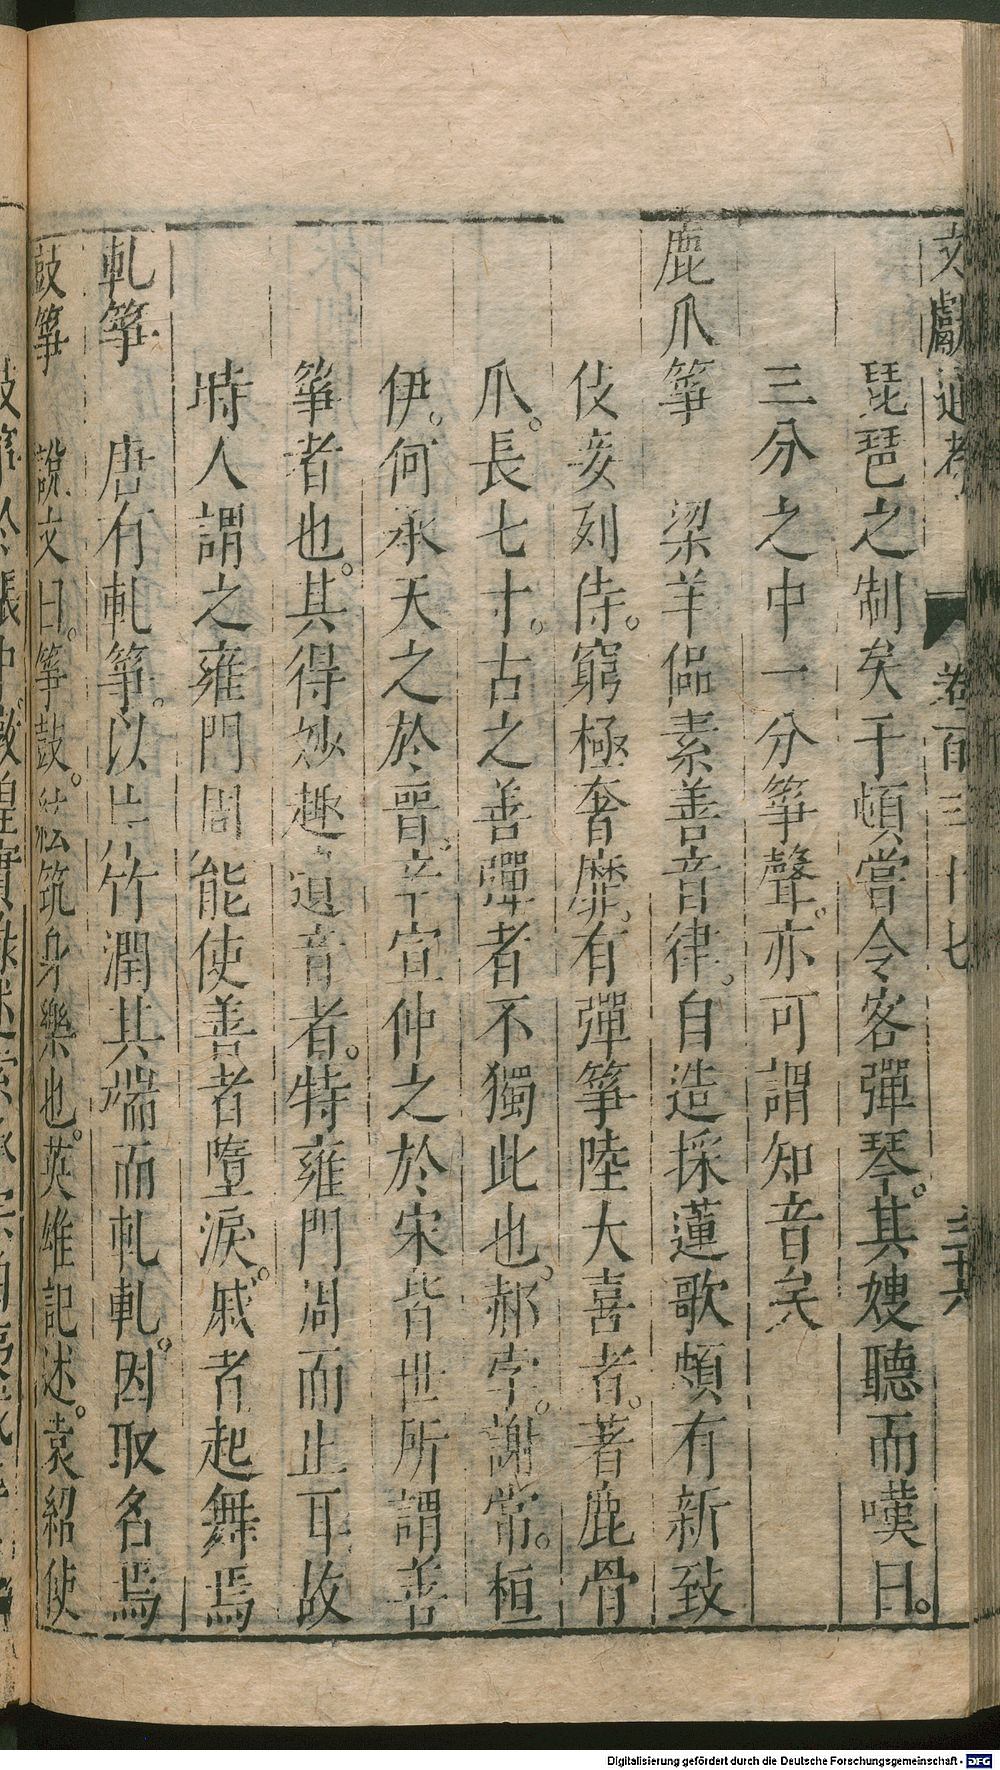 文獻通考 卷百三十七 三十六
琵琶之制矣于頔嘗令客彈琴。其嫂聽而嘆曰。
三分之中一分箏聲。亦可謂知音矣
鹿爪箏 梁羊侃素善音律。自造採蓮歌頗有新致
伎妾列侍。窮極奢靡。有彈箏陸大喜者。著鹿骨
爪。長七寸。古之善彈者不獨此也。郝宇。謝常。桓
伊。何承天之於晉。辛宣仲之於宋皆世所謂善
箏者也。其得妙趣遺音者。特雍門周而止耳故
時人謂之雍門周能使善者墮淚。戚者起舞焉
軋箏 唐有軋箏。以片竹潤其端而軋軋。因取名焉
鼓箏 說文曰。箏鼓。絃筑身樂也。英雄記述。袁紹使
Digitalisierung gefördert durch die Deutsche Forschungsgemeinschaft - DFG